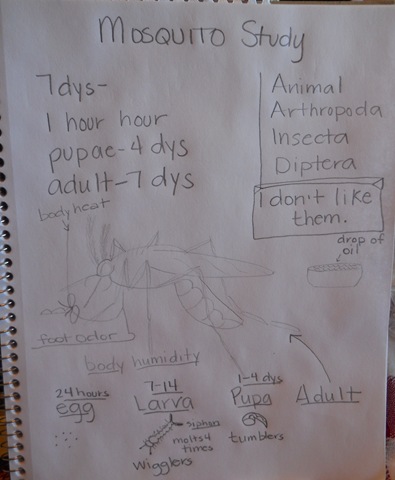 Mosquito Study
7 dys-
1 hour hour
pupae-4 dys
adult-7 dys
Animal
Arthropoda
Insecta
Diptera
I don't like
them.
body heat
drop of
oil
foot odor
body humidity
24 hours
egg
7-14
Larva
siphon
molts 4
times
wigglers
1-4 dys
Pupa
tumblers
Adult